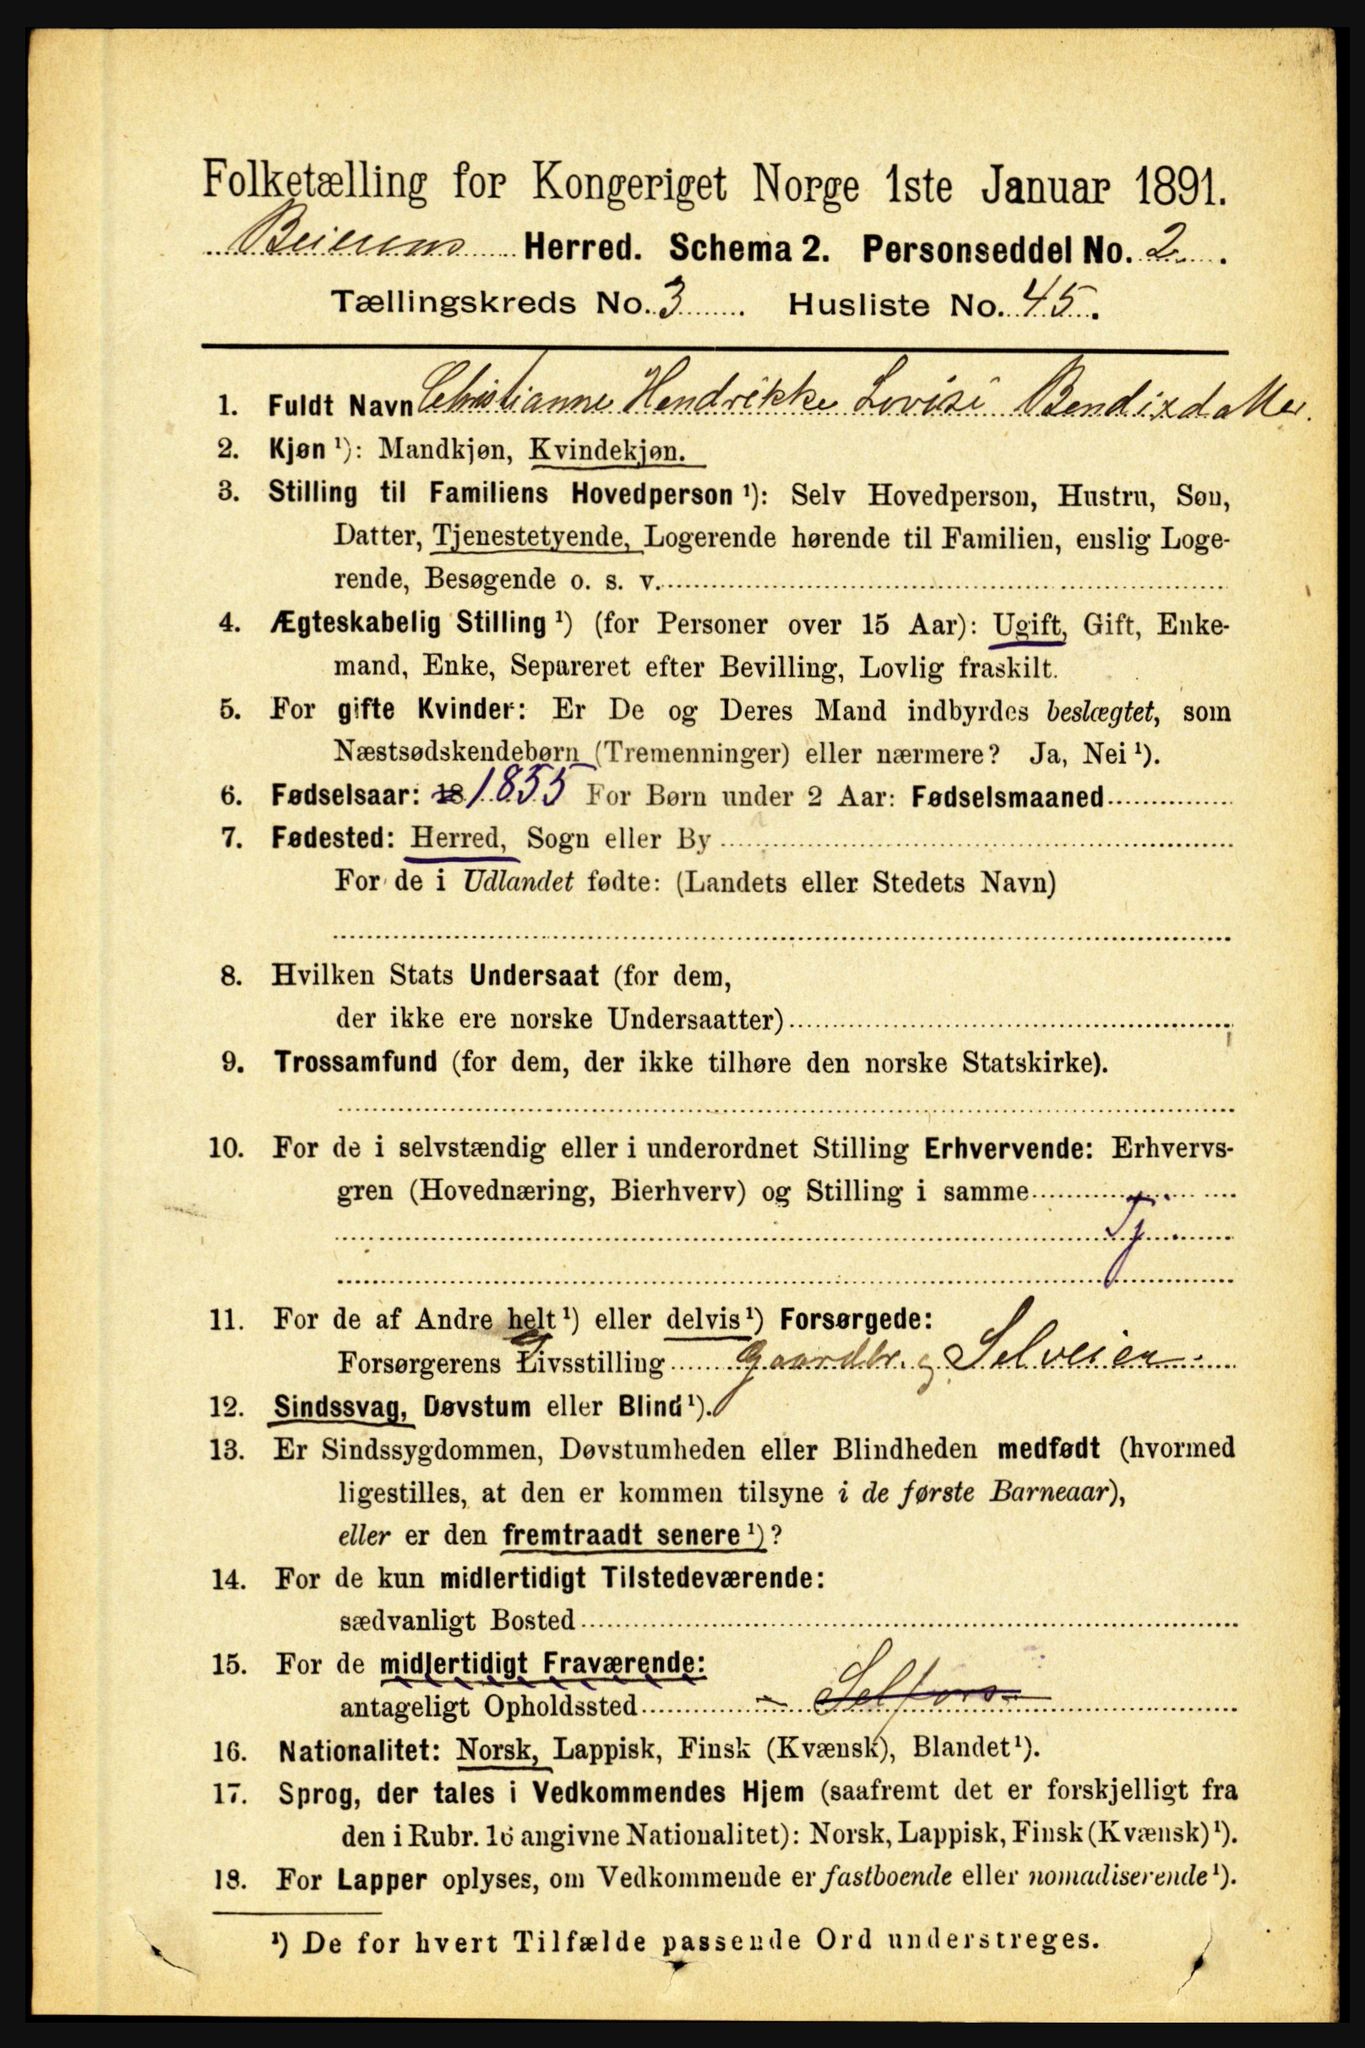 Folketælling for Kongeriget Norge 1ste Januar 1891.
Beierens Herred. Schema 2. Personseddel No. 2.
Tællingskreds No. 3 Husliste No. 45.
1. Fuldt Navn Christianne Hendrikke Lovise Bendixdatter.
2. Kjøn ¹): Mandkjøn, Kvindekjøn.
3. Stilling til Familiens Hovedperson ¹): Selv Hovedperson, Hustru, Søn,
Datter, Tjenestetyende, Logerende hørende til Familien, enslig Loge-
rende, Besøgende o. s. v.
4. Ægteskabelig Stilling ¹) (for Personer over 15 Aar): Ugift, Gift, Enke-
mand, Enke, Separeret efter Bevilling, Lovlig fraskilt.
5. For gifte Kvinder: Er De og Deres Mand indbyrdes beslægtet, som
Næstsødskendebørn (Tremenninger) eller nærmere? Ja, Nei ¹).
6. Fødselsaar: 18 1855 For Børn under 2 Aar: Fødselsmaaned
7. Fødested: Herred, Sogn eller By
For de i Udlandet fødte: (Landets eller Stedets Navn)
8. Hvilken Stats Undersaat (for dem,
der ikke ere norske Undersaatter)
9. Trossamfund (for dem, der ikke tilhøre den norske Statskirke).
10. For de i selvstændig eller i underordnet Stilling Erhvervende: Erhvervs-
gren (Hovednæring, Bierhverv) og Stilling i samme
Tj.
11. For de af Andre helt ¹) eller delvis ¹) Forsørgede:
Forsørgerens Livsstilling Gaardbr. og Selveier
12. Sindssvag, Døvstum eller Blind ¹).
13. Er Sindssygdommen, Døvstumheden eller Blindheden medfødt (hvormed
ligestilles, at den er kommen tilsyne i de første Barneaar),
eller er den fremtraadt senere ¹)?
14. For de kun midlertidigt Tilstedeværende:
sædvanligt Bosted
15. For de midlertidigt Fraværende:
antageligt Opholdssted – Selfors
16. Nationalitet: Norsk, Lappisk, Finsk (Kvænsk), Blandet ¹).
17. Sprog, der tales i Vedkommendes Hjem (saafremt det er forskjelligt fra
den i Rubr. 16 angivne Nationalitet): Norsk, Lappisk, Finsk (Kvænsk) ¹).
18. For Lapper oplyses, om Vedkommende er fastboende eller nomadiserende ¹).
¹) De for hvert Tilfælde passende Ord understreges.